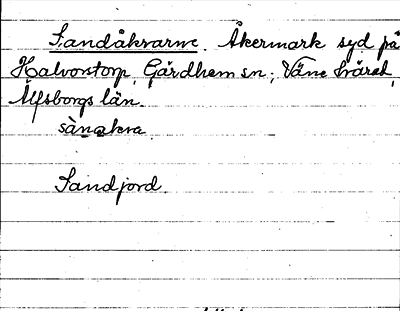 Sandåkrarne. Åkermark syd på
Halvorstorp, Gärdhem sn.; Väne härad,
Älfsborgs län.
sànakra
Sandjord.